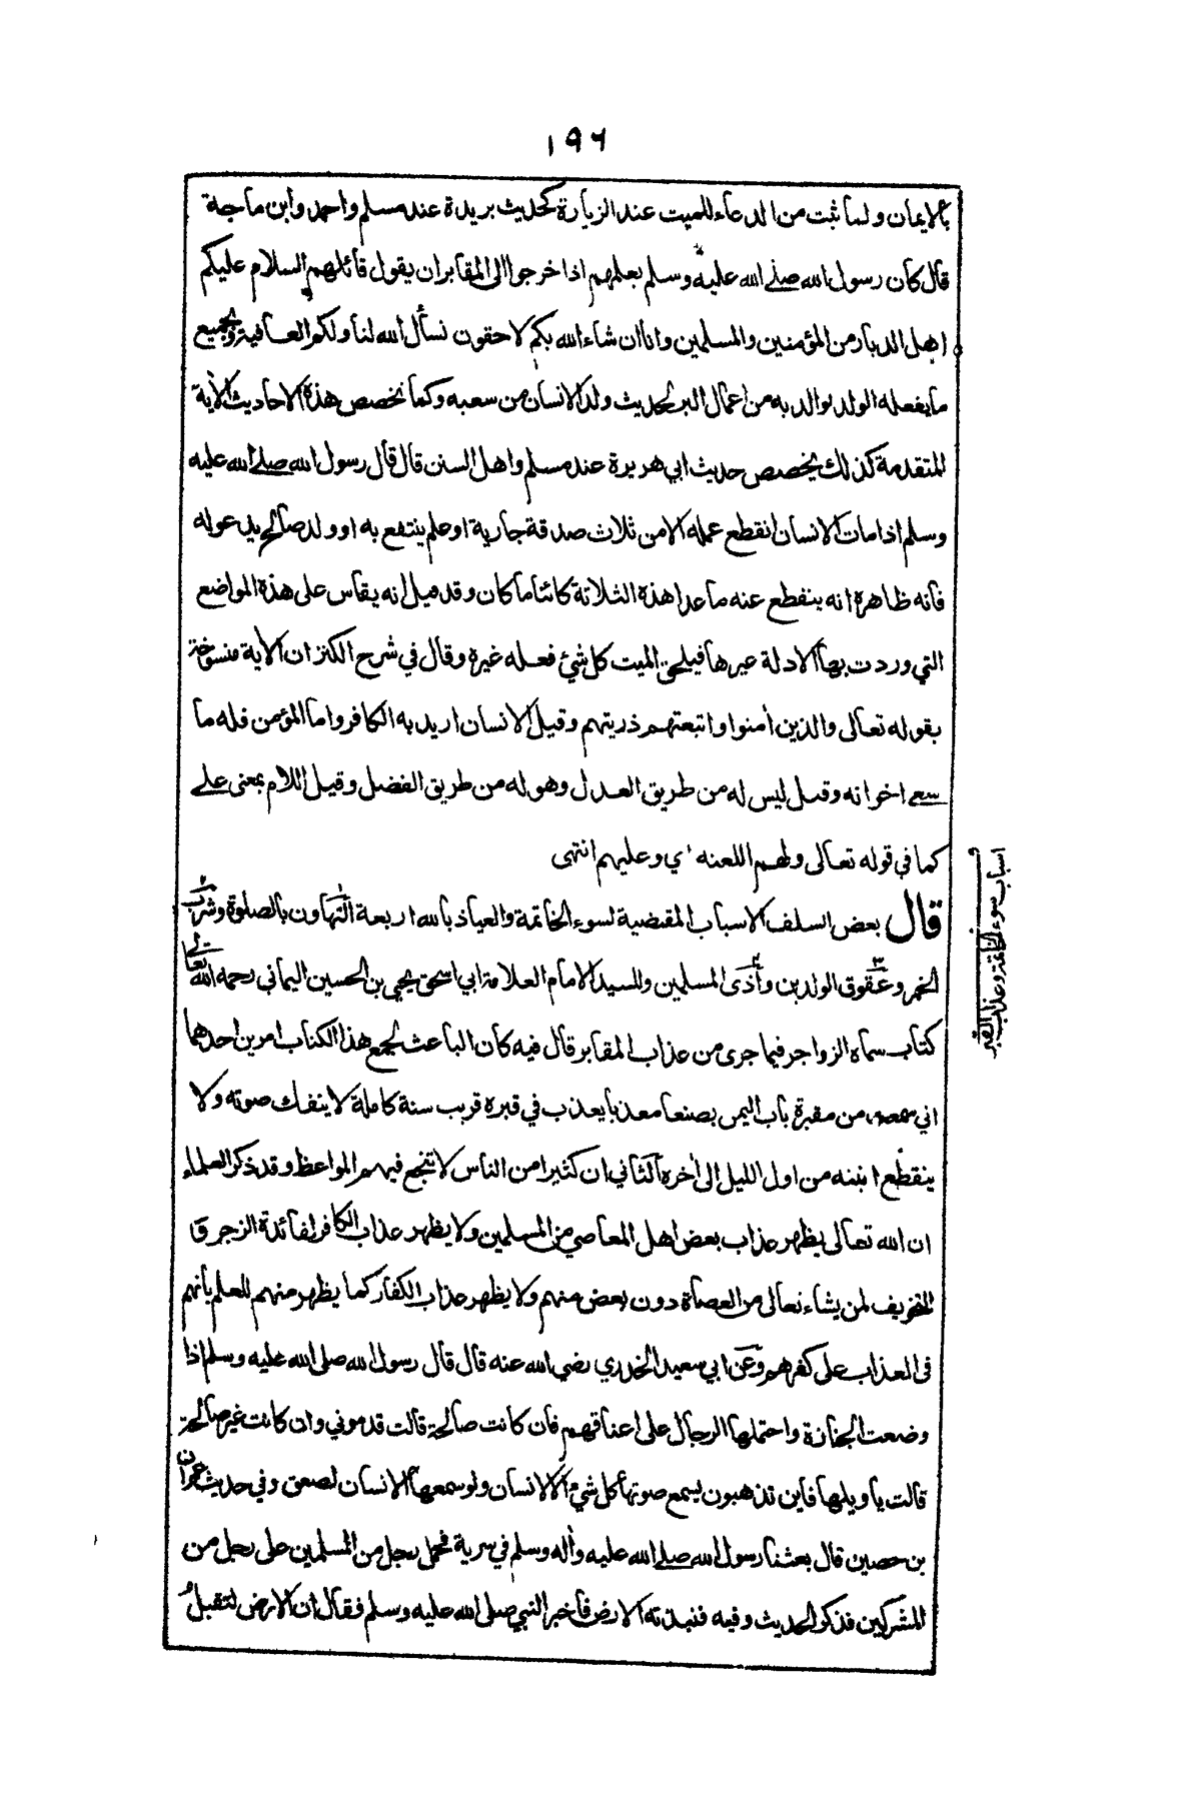 ١٩٦
بالايمان ولما ثبت من الدعاء للميت عند الزيارة كحديث بريدة عند مسلم واحمد وابن ماجة
قال كان رسول الله صلے الله عليه وسلم يعلمهم اذا خرجوا الى المقابر ان يقول قائلهم السلام عليكم
اهل الديار من المؤمنين والمسلمين وانا ان شاء الله بكم لاحقون نسأل الله لنا ولكم العافية وبجميع
ما يفعله الولد لوالديه من اعمال البر لحديث ولد الانسان من سعيه وكما تخصص هذة الاحاديث الأية
المتقدمة كذلك يخصص حديث ابي هريرة عند مسلم واهل السنن قال قال رسول الله صلے الله عليه
وسلم اذا مات الانسان انقطع عمله الا من ثلاث صدقة جارية او علم ينتفع به او ولد صالح يدعو له
فأنه ظاهرة انه ينقطع عنه ما عدا هذة الثلاثة كائنا ما كان وقد قيل انه يقاس على هذة المواضع
التي وردت بها الادلة غيرها فيلحق الميت كل شئ فعله غيرة وقال في شرح الكنز ان الأية منسوخة
بقوله تعالى والذين أمنوا واتبعتهم ذريتهم وقيل الانسان اريد به الكافر واما المؤمن فله ما
سعے اخوانه وقيل ليس له من طريق العدل وهو له من طريق الفضل وقيل اللام بمعنى علے
كما في قوله تعالى ولهم اللعنه اي وعليهم انتهى
قال بعض السلف الاسباب المقتضية لسوء الخاتمة والعياذ بالله اربعة التهاون بالصلوة وشرب
الخمر وعقوق الوالدين وأذى المسلمين وللسيد الامام العلامة ابي اسحق يحيى بن الحسين اليماني رحمه الله تعالے
كتاب سماه الزواجر فيما جرى من عذاب المقابر قال فيه كان الباعث لجمع هذا الكتاب امرين احدهما
اني سمعت من مقبرة باب اليمن بصنعا معذبا يعذب في قبرة قريب سنة كاملة لا ينفك صوته ولا
ينقطع انينه من اول الليل الى أخرة الثاني ان كثيرا من الناس لا تنجع فيهم المواعظ وقد ذكر العلماء
ان الله تعالى يظهر عذاب بعض اهل المعاصي من المسلمين ولا يظهر عذاب الكافر لفائدة الزجر و
التخويف لمن يشاء تعالى من العصاة دون بعض منهم ولا يظهر عذاب الكفار كما يظهر منهم للعلم بأنهم
فى العذاب على كفرهم وعن ابي سعيد الخدري رضي الله عنه قال قال رسول الله صلى الله عليه وسلم اذا
وضعت الجنازة واحتملها الرجال على اعناقهم فان كانت صالحة قالت قدموني وان كانت غير صالحة
قالت يا ويلها فأين تذهبون يسمع صوتها كل شئ الا الانسان ولو سمعها الانسان لصعق وفي حديث عمران
بن حصين قال بعثنا رسول الله صلے الله عليه وأله وسلم في سرية فحمل رجل من المسلمين على رجل من
المشركين فذكر الحديث وفيه فنبذته الارض فأخبر النبي صلى الله عليه وسلم فقال ان الارض لتقبل
اسباب سوء الخاتمة وعذاب القبر